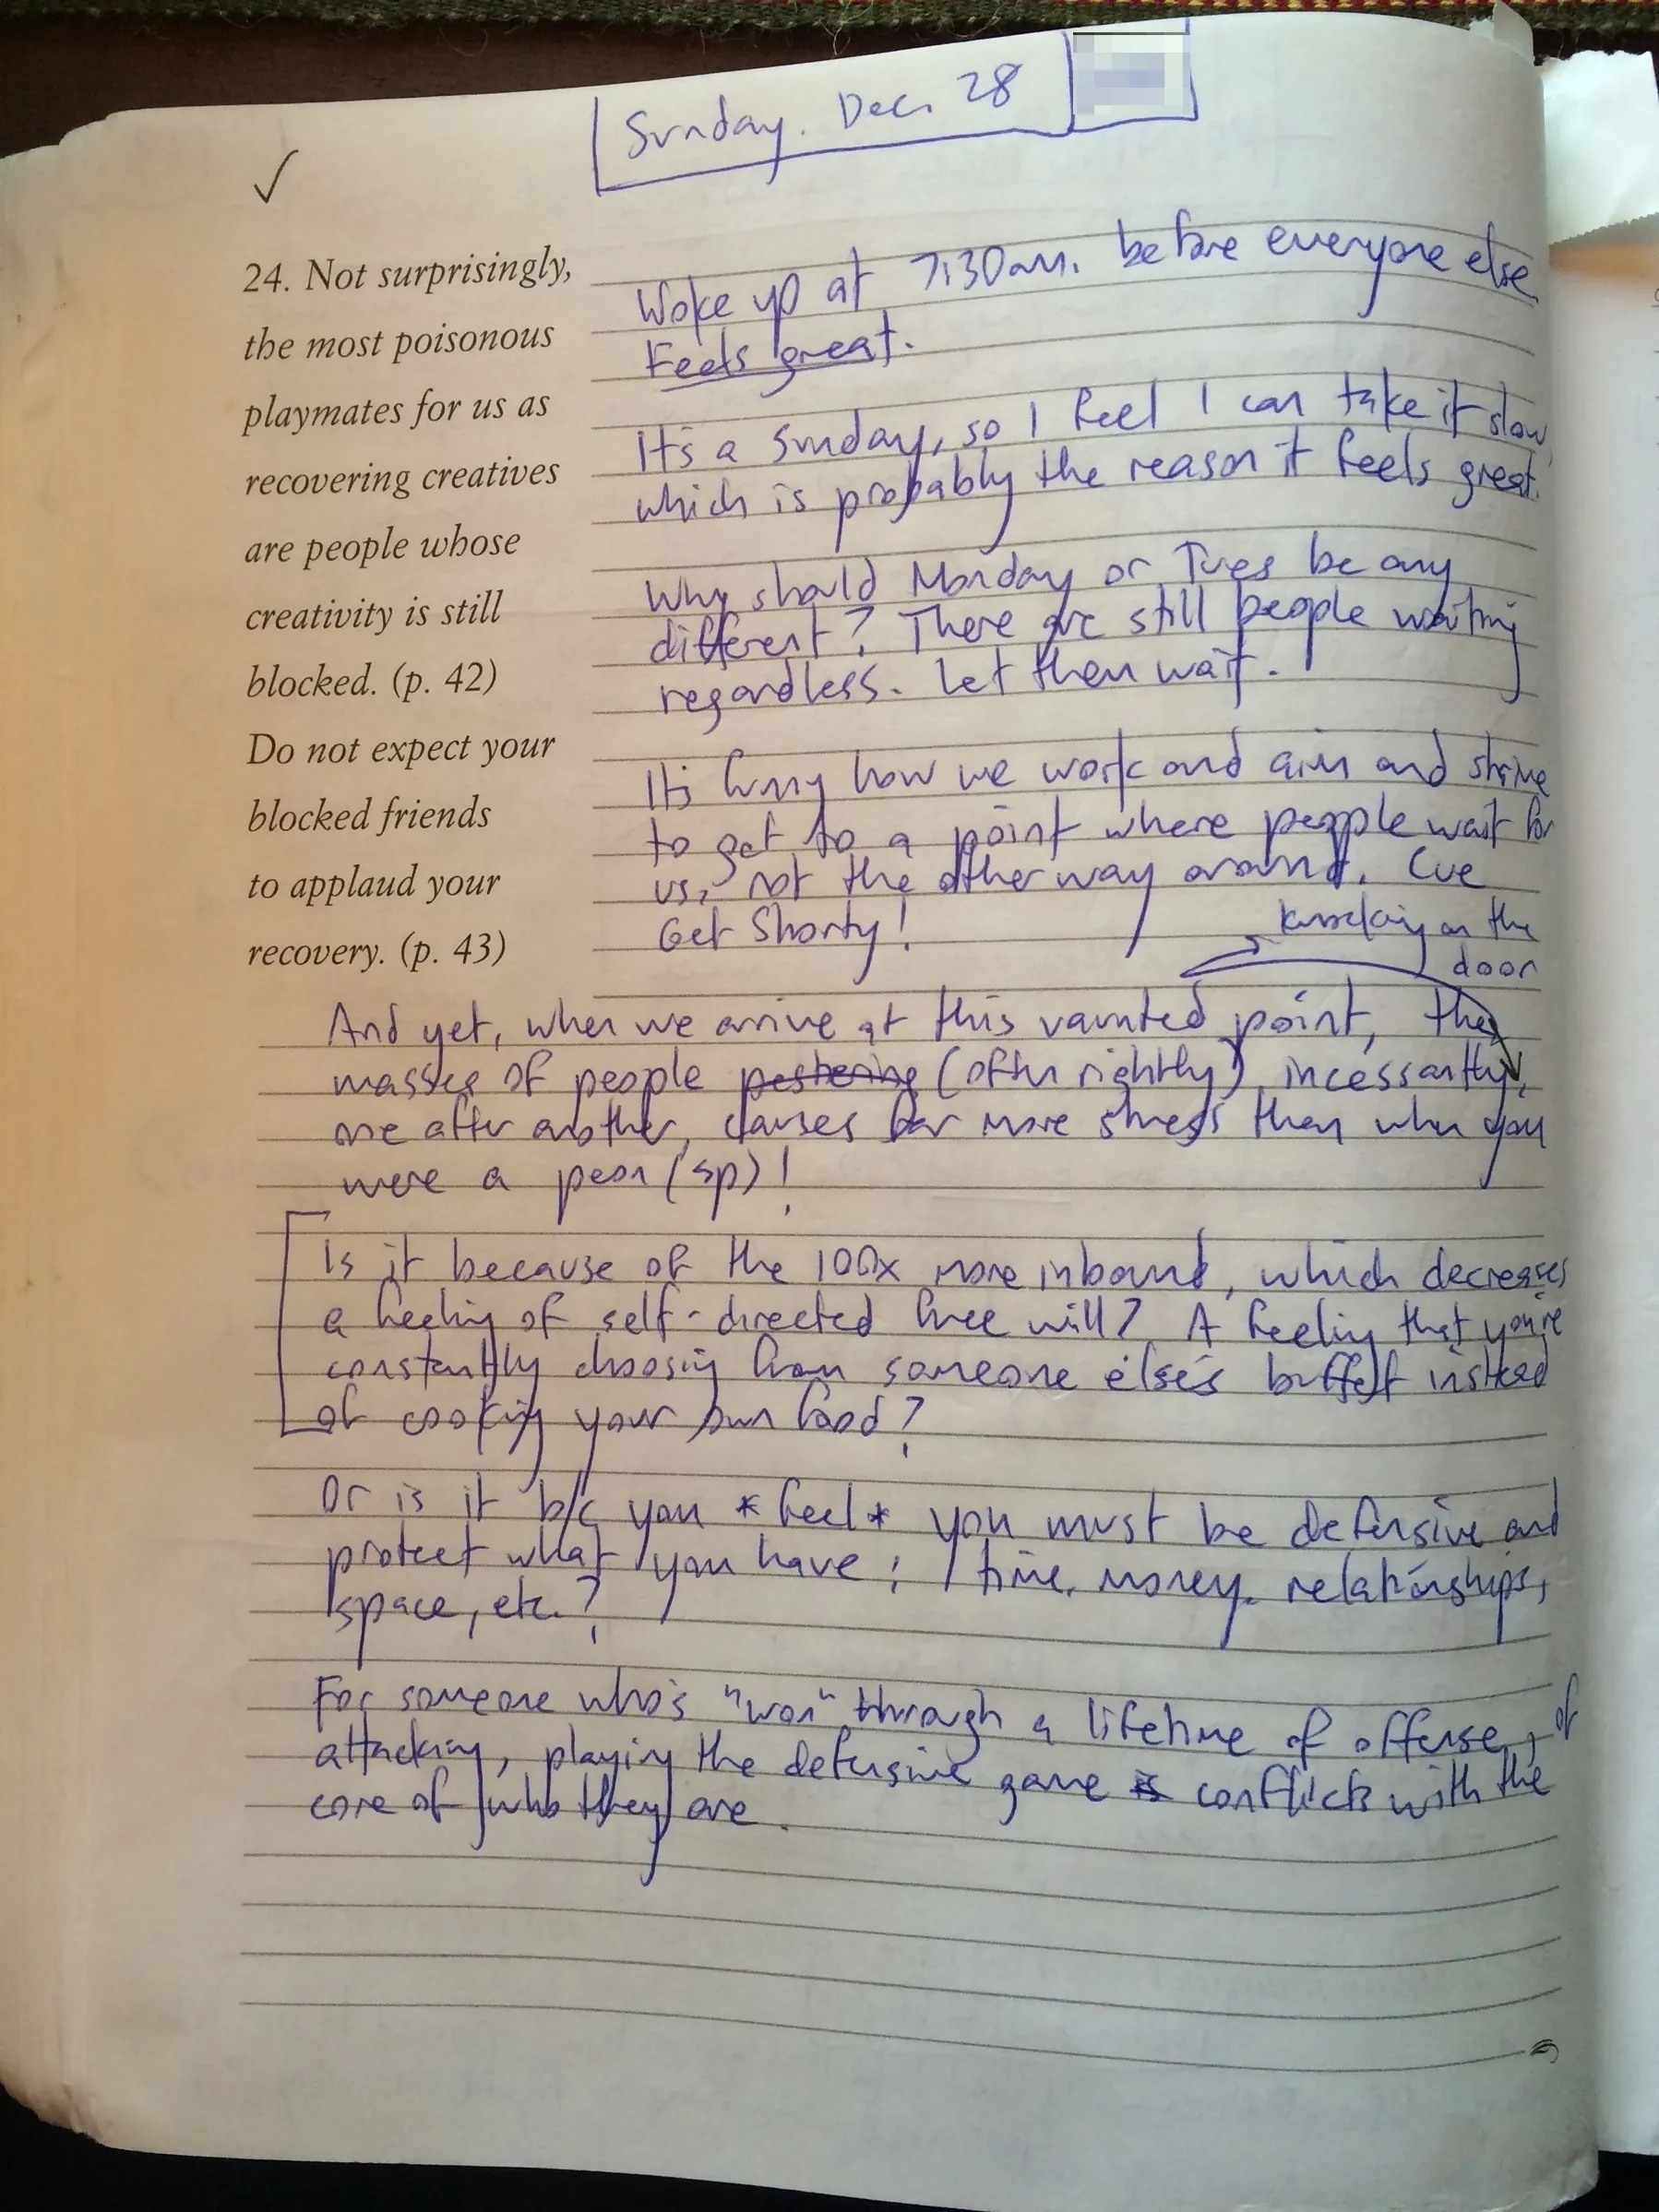 Sunday. Dec. 28
✓
24. Not surprisingly,
the most poisonous
playmates for us as
recovering creatives
are people whose
creativity is still
blocked. (p. 42)
Do not expect your
blocked friends
to applaud your
recovery. (p. 43)
Woke up at 7:30am. before everyone else.
Feels great.
It's a Sunday, so I feel I can take it slow,
which is probably the reason it feels great.
Why should Monday or Tues be any
different? There are still people waiting
regardless. Let them wait.
It's funny how we work and aim and strive
to get to a point where people wait for
us, not the other way around. Cue
Get Shorty!
knocking on the
door
And yet, when we arrive at this vaunted point, the
masses of people pestering (often rightly) incessantly,
one after another, causes far more stress than when you
were a peon (sp)!
Is it because of the 100x more inbound, which decreases
a feeling of self-directed free will? A feeling that you're
constantly choosing from someone else's buffet instead
of cooking your own food?
Or is it b/c you *feel* you must be defensive and
protect what you have: time, money, relationships,
space, etc.?
For someone who's "won" through a lifetime of offense, of
attacking, playing the defensive game is conflicts with the
core of who they are.